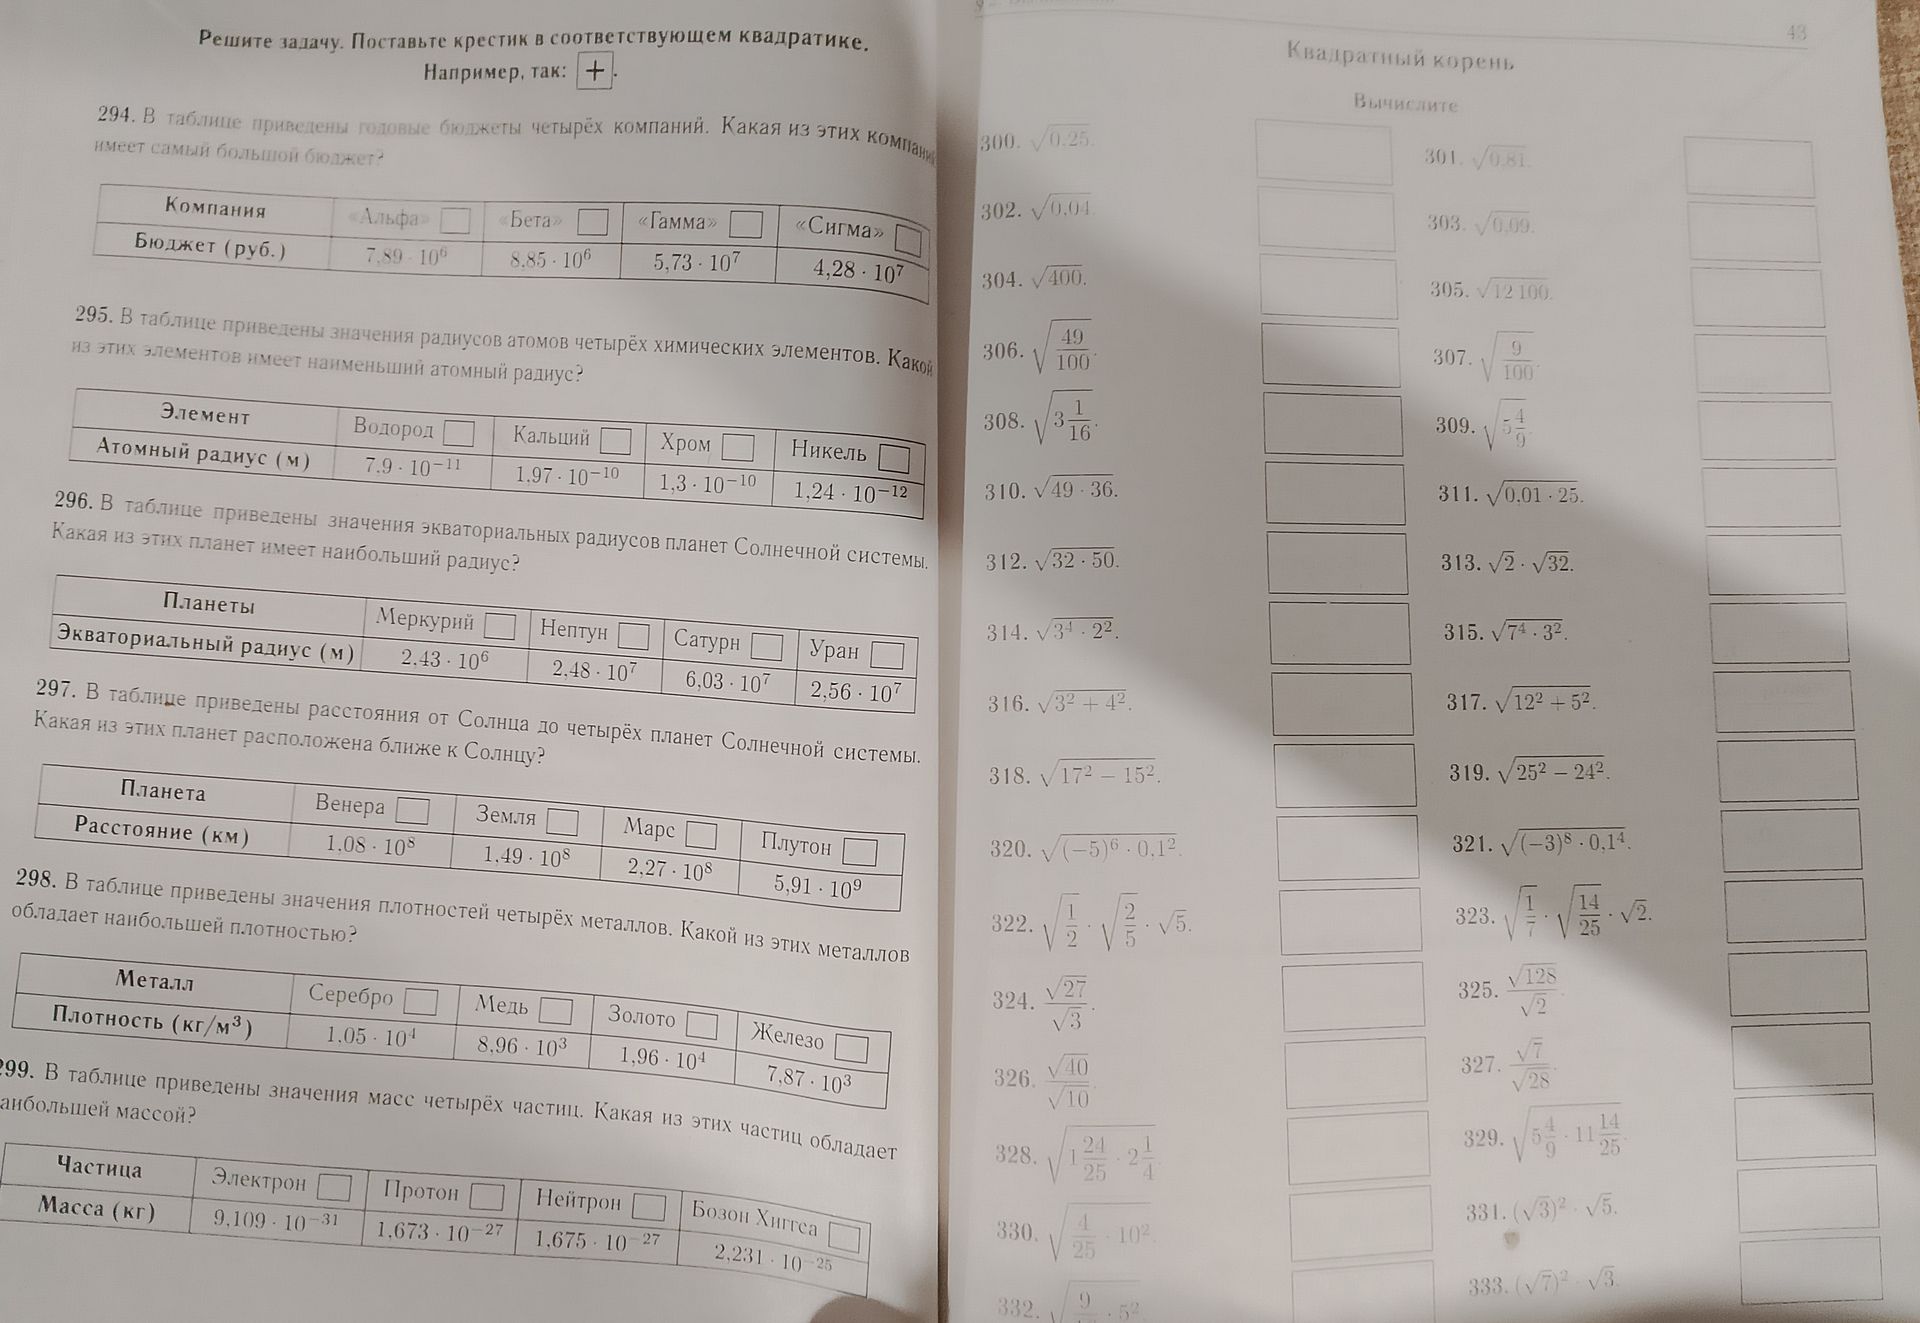 Решите задачу. Поставьте крестик в соответствующем квадратике.
Например, так: +.
294. В таблице приведены годовые бюджеты четырёх компаний. Какая из этих компаний
имеет самый большой бюджет?
Компания «Альфа» «Бета» «Гамма» «Сигма»
Бюджет (руб.) 7,89 · 10⁶ 8,85 · 10⁶ 5,73 · 10⁷ 4,28 · 10⁷
295. В таблице приведены значения радиусов атомов четырёх химических элементов. Какой
из этих элементов имеет наименьший атомный радиус?
Элемент Водород Кальций Хром Никель
Атомный радиус (м) 7.9 · 10⁻¹¹ 1,97 · 10⁻¹⁰ 1,3 · 10⁻¹⁰ 1,24 · 10⁻¹²
296. В таблице приведены значения экваториальных радиусов планет Солнечной системы.
Какая из этих планет имеет наибольший радиус?
Планеты Меркурий Нептун Сатурн Уран
Экваториальный радиус (м) 2,43 · 10⁶ 2,48 · 10⁷ 6,03 · 10⁷ 2,56 · 10⁷
297. В таблице приведены расстояния от Солнца до четырёх планет Солнечной системы.
Какая из этих планет расположена ближе к Солнцу?
Планета Венера Земля Марс Плутон
Расстояние (км) 1,08 · 10⁸ 1,49 · 10⁸ 2,27 · 10⁸ 5,91 · 10⁹
298. В таблице приведены значения плотностей четырёх металлов. Какой из этих металлов
обладает наибольшей плотностью?
Металл Серебро Медь Золото Железо
Плотность (кг/м³) 1,05 · 10⁴ 8,96 · 10³ 1,96 · 10⁴ 7,87 · 10³
299. В таблице приведены значения масс четырёх частиц. Какая из этих частиц обладает
аибольшей массой?
Частица Электрон Протон Нейтрон Бозон Хиггса
Масса (кг) 9,109 · 10⁻³¹ 1,673 · 10⁻²⁷ 1,675 · 10⁻²⁷ 2,231 · 10⁻²⁵
43
Квадратный корень
Вычислите
300. √0,25. 301. √0,81.
302. √0,04. 303. √0,09.
304. √400. 305. √12 100.
306. √(49/100). 307. √(9/100).
308. √(3 1/16). 309. √(5 4/9).
310. √(49 · 36). 311. √(0,01 · 25).
312. √(32 · 50). 313. √2 · √32.
314. √(3⁴ · 2²). 315. √(7⁴ · 3²).
316. √(3² + 4²). 317. √(12² + 5²).
318. √(17² − 15²). 319. √(25² − 24²).
320. √((−5)⁶ · 0,1²). 321. √((−3)⁸ · 0,1⁴).
322. √(1/2) · √(2/5) · √5. 323. √(1/7) · √(14/25) · √2.
324. √27/√3. 325. √128/√2.
326. √40/√10. 327. √7/√28.
328. √(1 24/25 · 2 1/4). 329. √(5 4/9 · 11 14/25).
330. √(4/25 · 10²). 331. (√3)² · √5.
332. 333. (√7)² · √3.